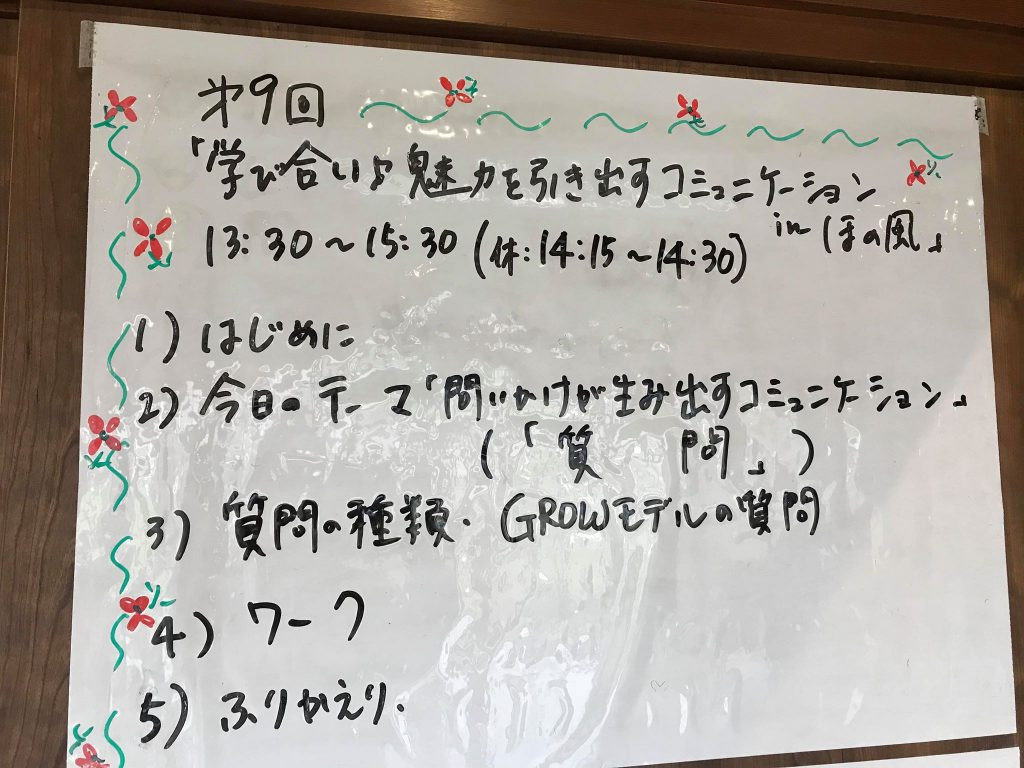 第9回
「学び合い♪魅力を引き出すコミュニケーション
in ほの風」
13:30～15:30 (休:14:15～14:30)
1) はじめに
2) 今日のテーマ「問いかけが生み出すコミュニケーション」
(「質 問」)
3) 質問の種類・GROWモデルの質問
4) ワーク
5) ふりかえり.